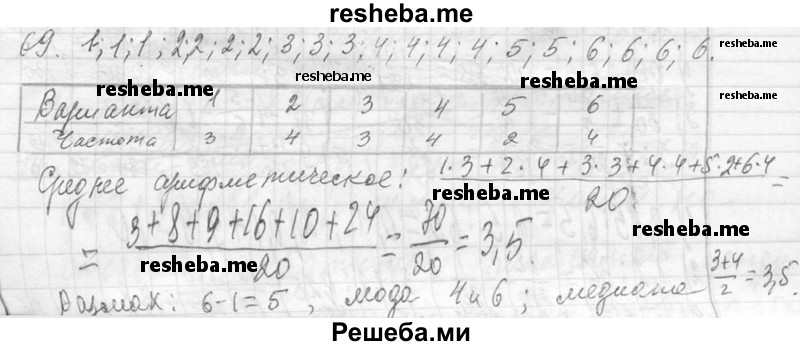 resheba.me
69. 1; 1; 1; 2; 2; 2; 2; 3; 3; 3; 4; 4; 4; 4; 5; 5; 6; 6; 6; 6.
resheba.me
resheba.me
resheba.me
Варианта 1 2 3 4 5 6
Частота 3 4 3 4 2 4
Среднее арифметическое: (1·3+2·4+3·3+4·4+5·2+6·4)/20 =
resheba.me
= (3+8+9+16+10+24)/20 = 70/20 = 3,5.
resheba.me
resheba.me
Размах: 6-1=5, мода 4 и 6; медиана (3+4)/2 = 3,5.
Решеба.ми